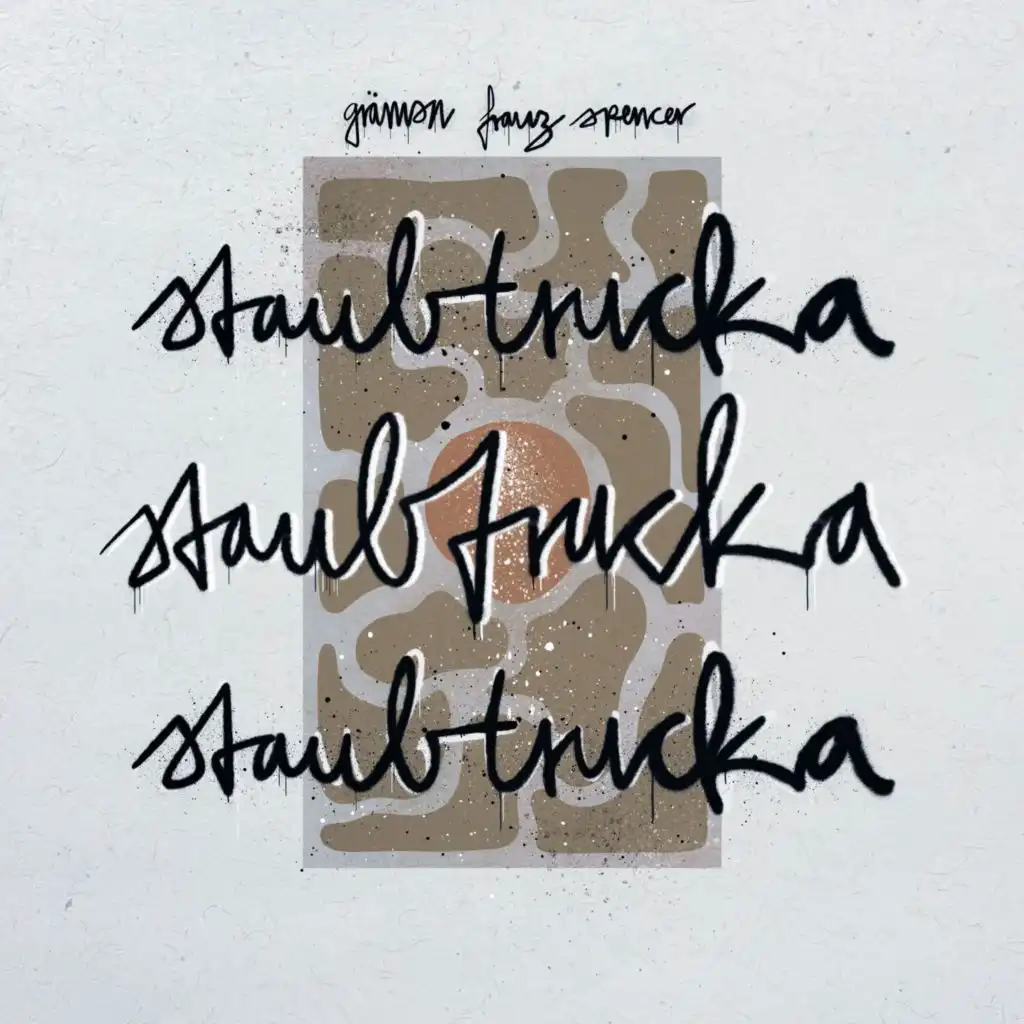 grämsn franz spencer
staubtrucka
staubtrucka
staubtrucka